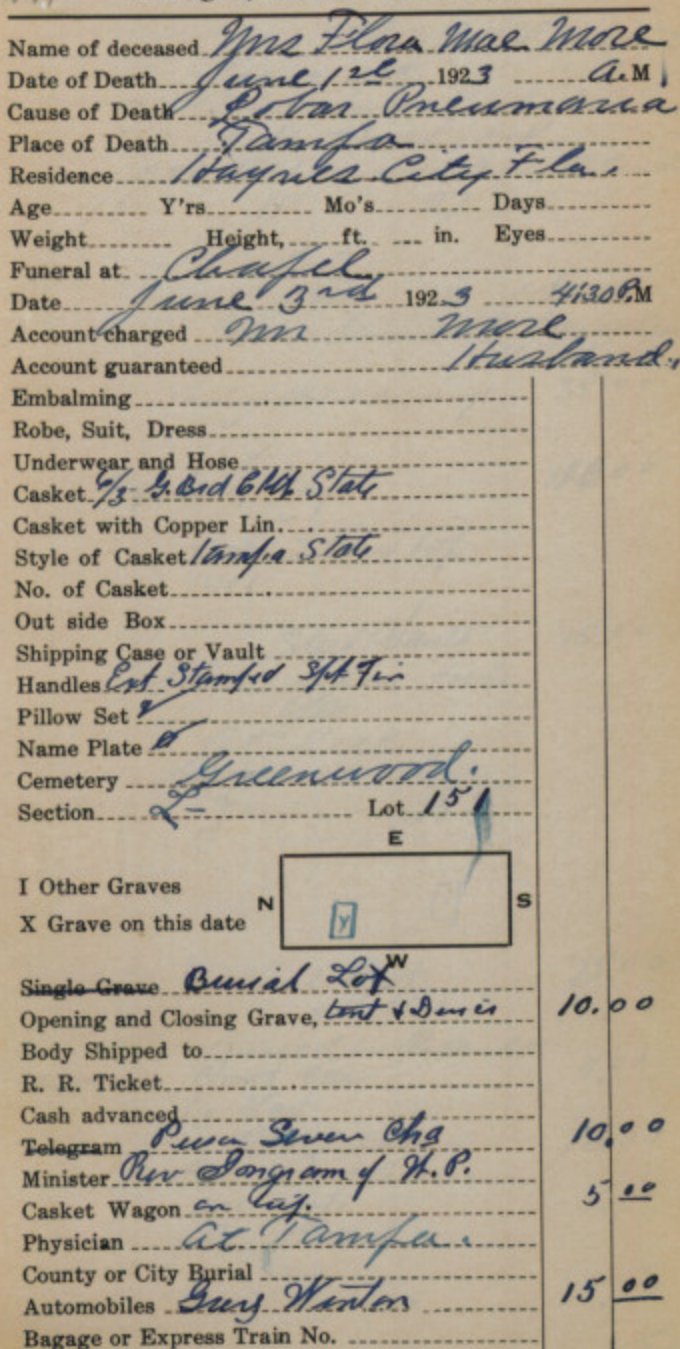 Name of deceased Mrs Flora Mae More
Date of Death June 1st 1923 A.M
Cause of Death Lobar Pneumonia
Place of Death Tampa
Residence Haynes City Fla.
Age Y'rs Mo's Days
Weight Height, ft. in. Eyes
Funeral at Chapel
Date June 3rd 1923 4:30 P.M
Account charged Mr More
Account guaranteed Husband.
Embalming
Robe, Suit, Dress
Underwear and Hose
Casket 6/3 State
Casket with Copper Lin.
Style of Casket Tampa State
No. of Casket
Out side Box
Shipping Case or Vault
Handles Ext Stamped
Pillow Set
Name Plate
Cemetery Greenwood.
Section L Lot 151
E
I Other Graves
N S
X Grave on this date
W
Single Grave Burial Lot
Opening and Closing Grave, tent & 10.00
Body Shipped to
R. R. Ticket
Cash advanced
Telegram Seven 10.00
Minister Rev of H.P.
Casket Wagon 5 00
Physician at Tampa.
County or City Burial
Automobiles Winton 15 00
Bagage or Express Train No.